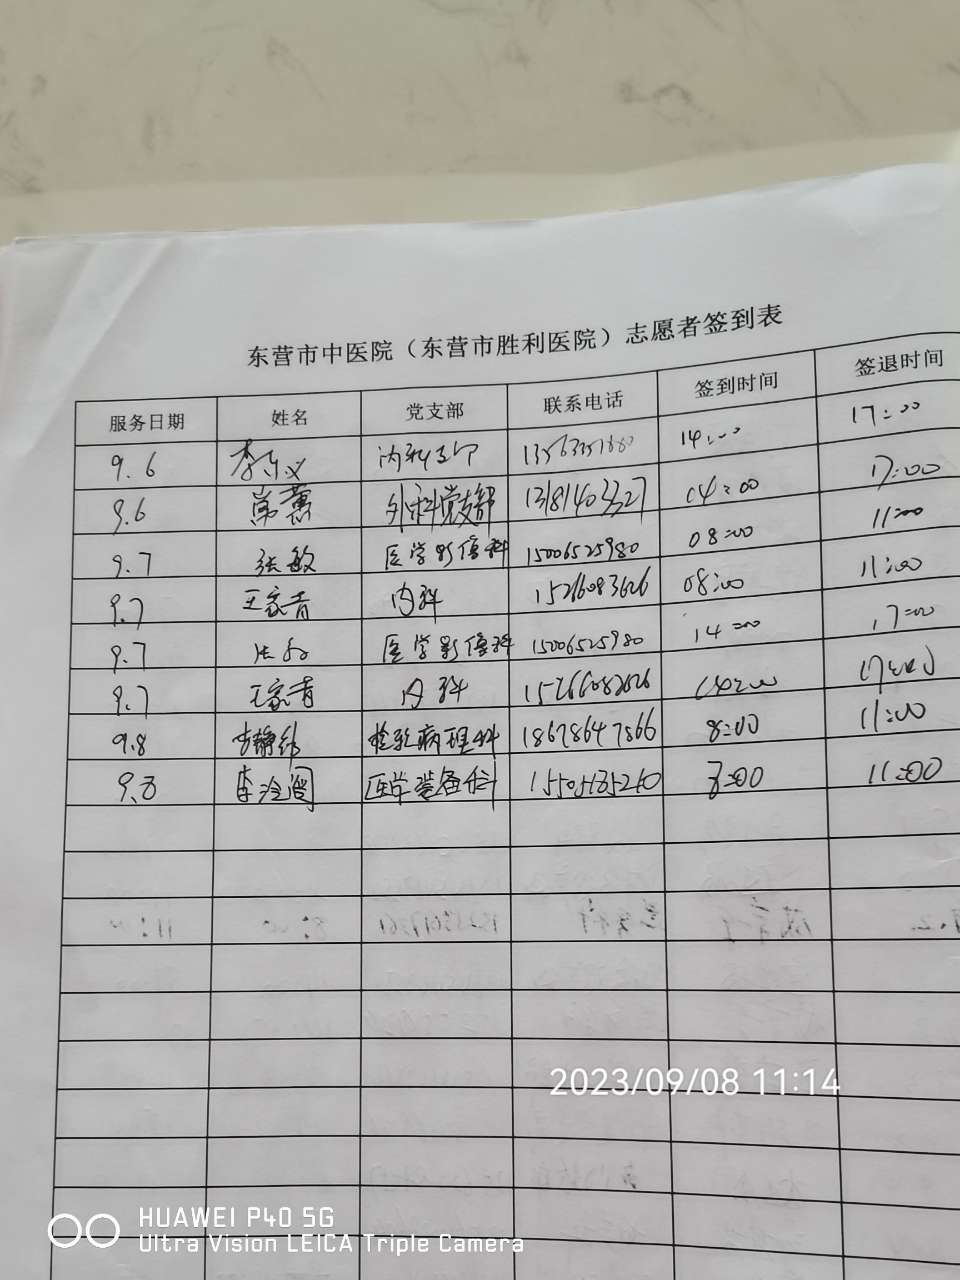 东营市中医院（东营市胜利医院）志愿者签到表
服务日期 姓名 党支部 联系电话 签到时间 签退时间
9.6 内科支部 14:00 17:00
9.6 常蕙 外科党支部 13181403327 14:00 17:00
9.7 张敏 医学影像科 15006525980 08:00 11:00
9.7 王家青 内科 08:00 11:00
9.7 医学影像科 15006525980 14:00 17:00
9.7 王家青 内科 14:00
9.8 检验病理科 18678647866 8:00 11:00
9.8 医学装备科 8:00 11:00
2023/09/08 11:14
HUAWEI P40 5G
Ultra Vision LEICA Triple Camera